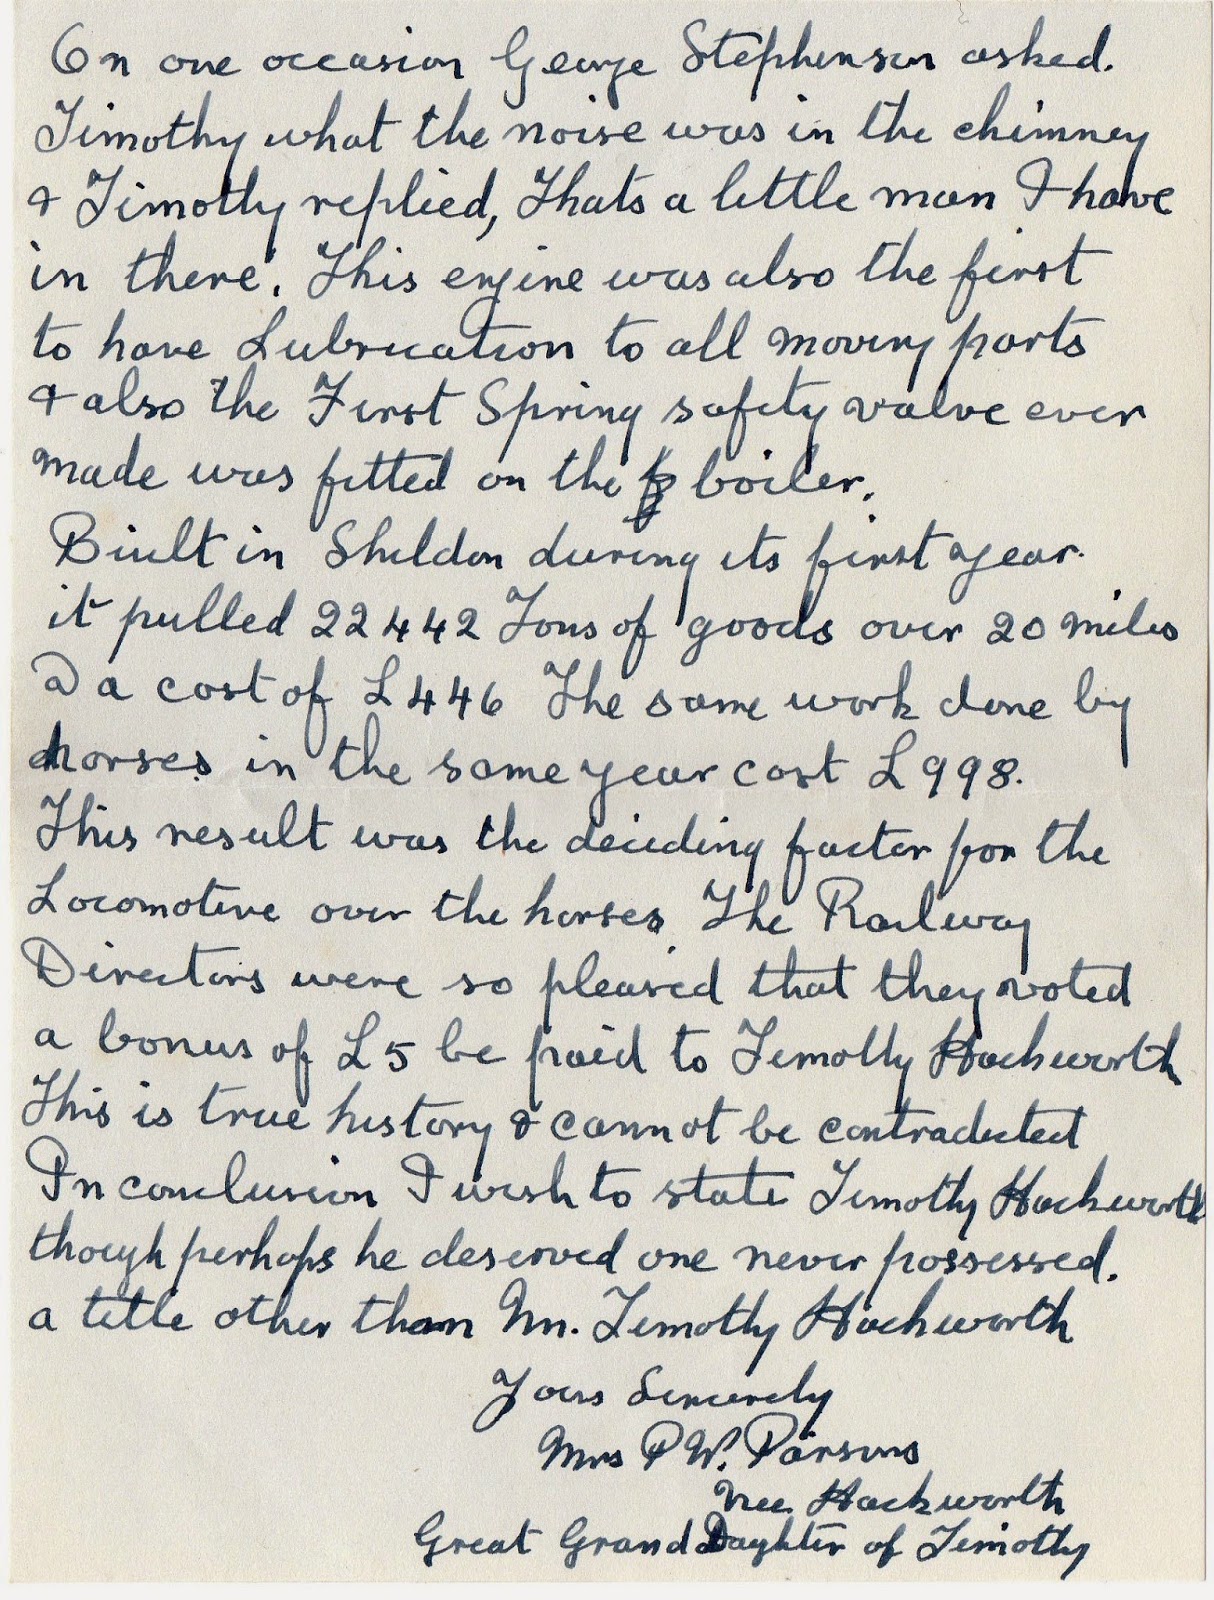 On one occasion George Stephenson asked.
Timothy what the noise was in the chimney
& Timothy replied, Thats a little man I have
in there. This engine was also the first
to have Lubrication to all moving parts
& also the First Spring safety valve ever
made was fitted on the boiler.
Biult in Shildon during its first year.
it pulled 22442 Tons of goods over 20 miles
@ a cost of £446 The same work done by
horses in the same year cost £998.
This result was the deciding factor for the
Locomotive over the horses The Railway
Directors were so pleased that they voted
a bonus of £5 be paid to Timothy Hackworth
This is true history & cannot be contradicted
In conclusion I wish to state Timothy Hackworth
though perhaps he deserved one never possessed.
a title other than Mr. Timothy Hackworth
Yours Sincerely
Mrs P W. Parsons
Nee Hackworth
Great Grand Daughter of Timothy